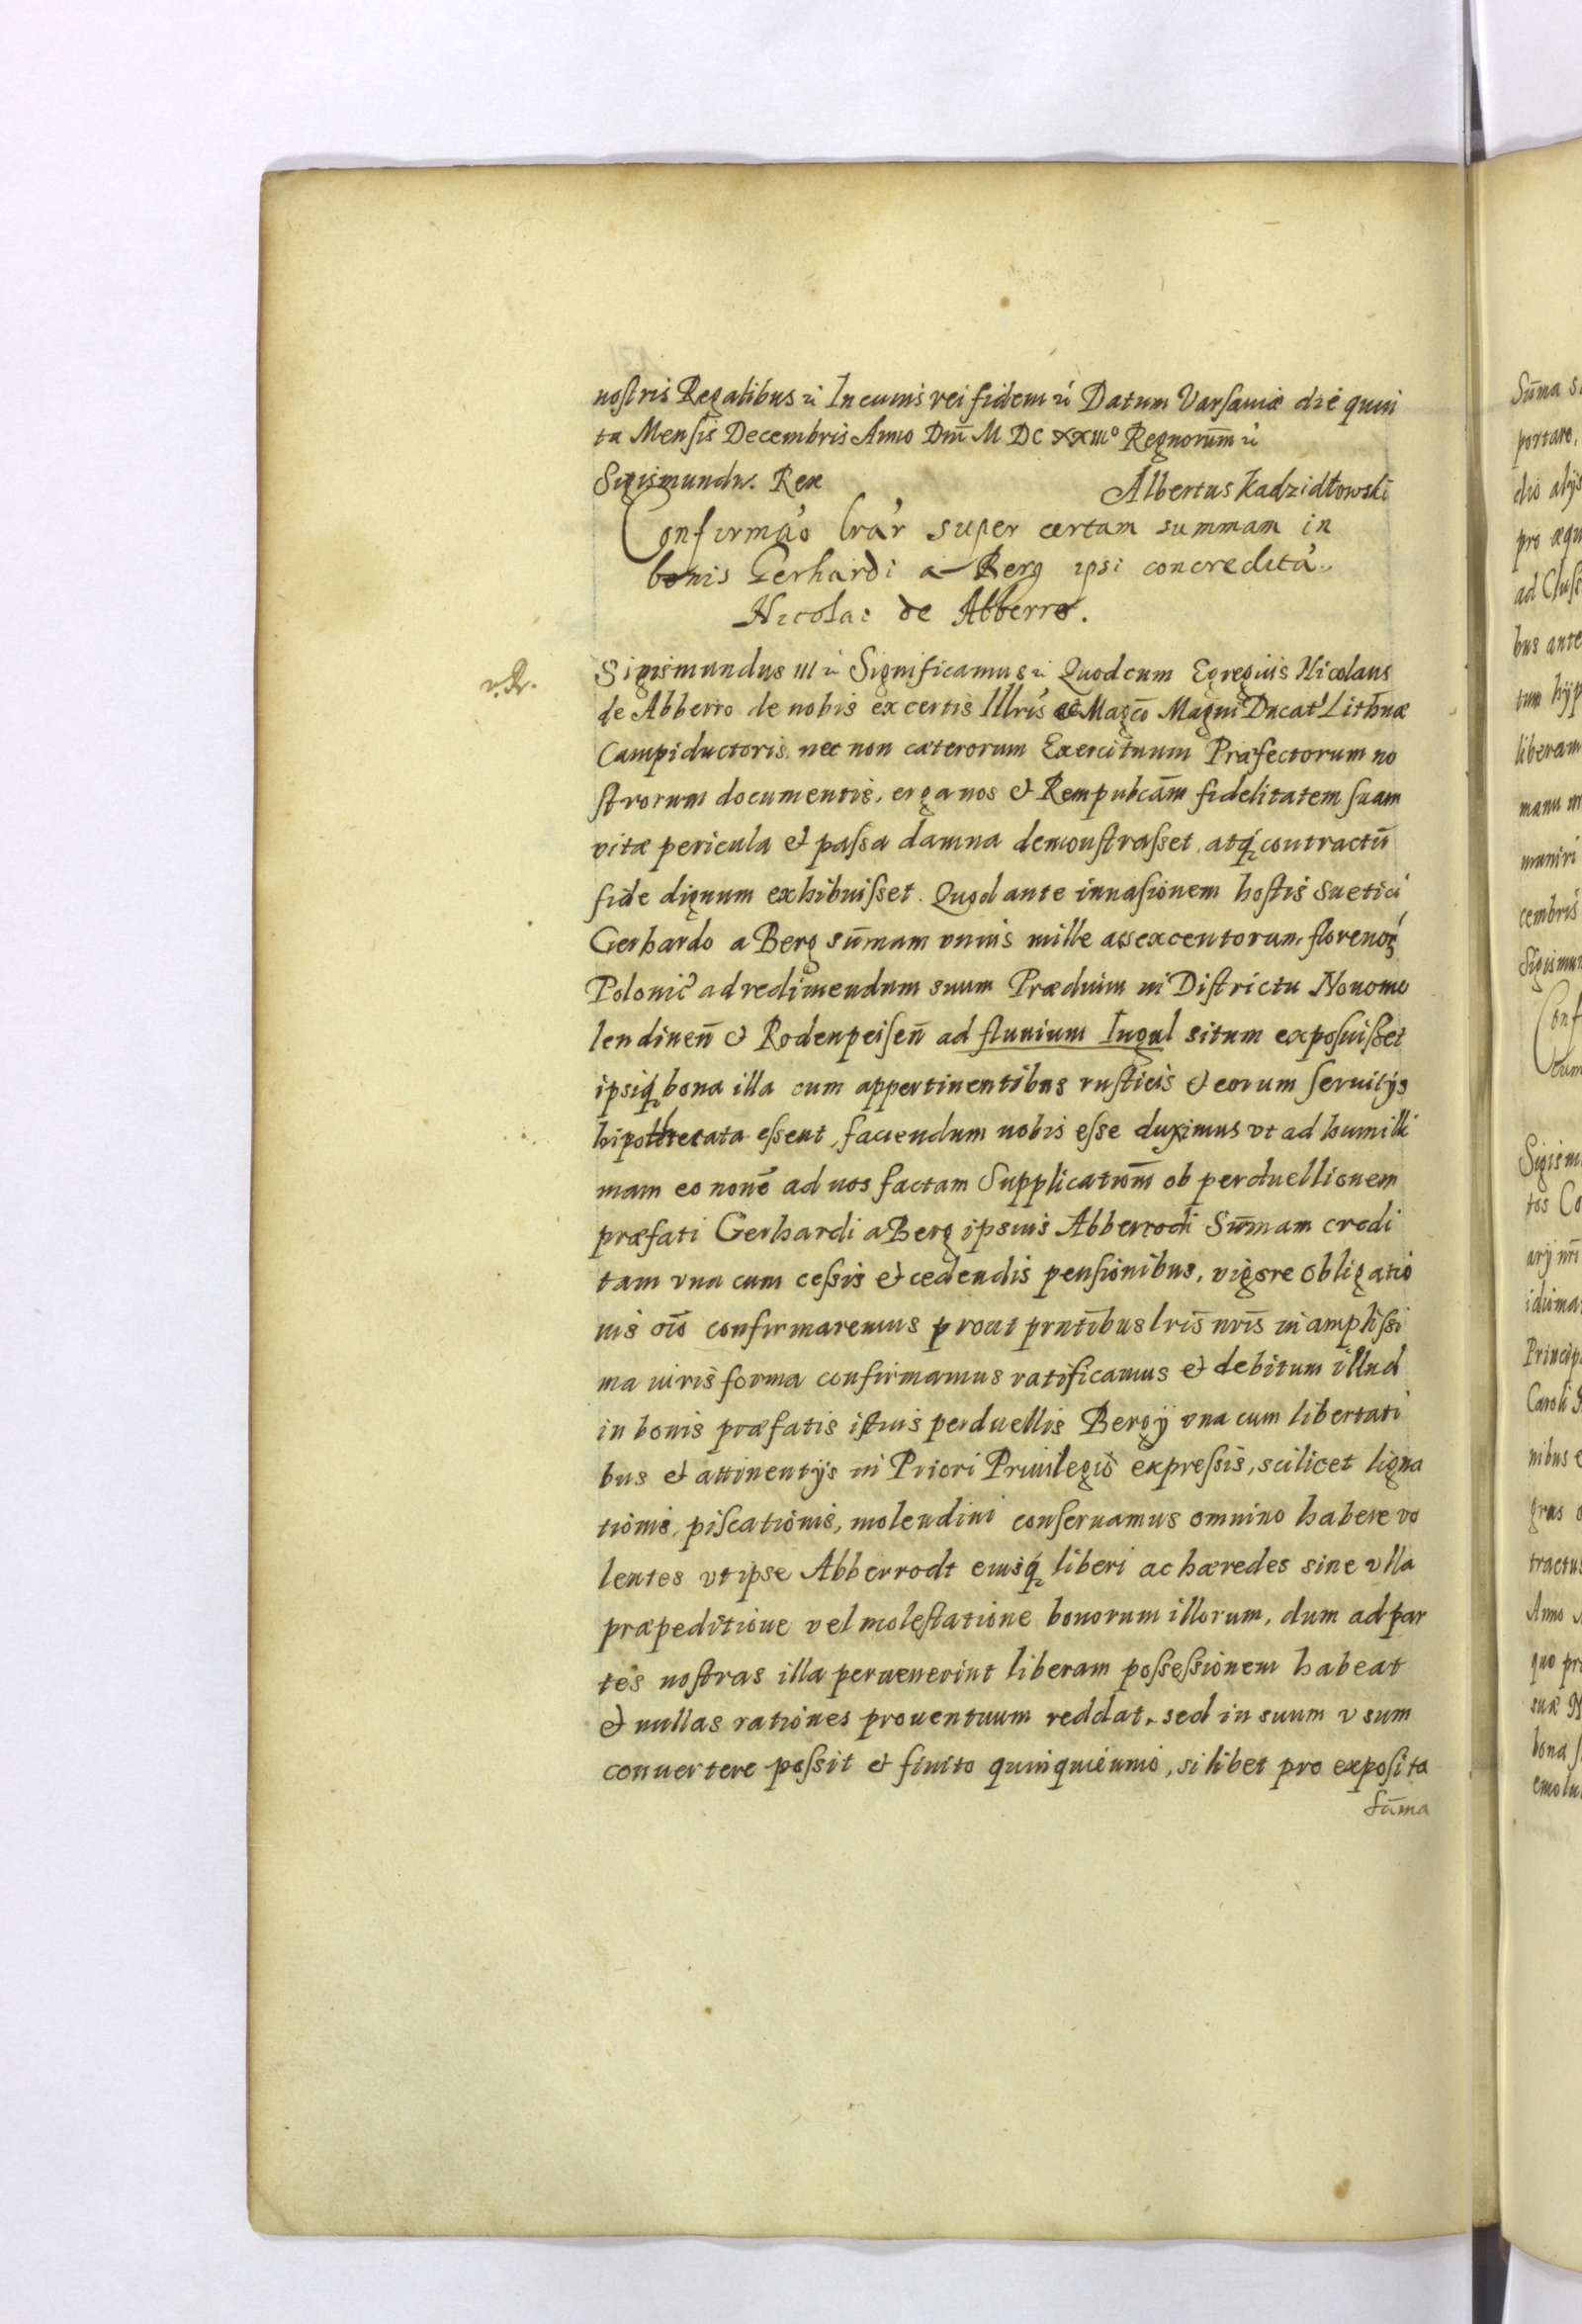 nostris Regalibus etc Incuius rei fidem etc Datum Varsauiæ die quin
ta Mensis Decembris Anno Dnī M DC XXIIIº Regnorum̄ etc
Sigismundus Rex Albertus Kadzidłowski
Confirma'o lra'r super certam summam in
bonis Gerhardi a Berg ipsi concredita'
Nicolao de Abberro.
v. R.
Sigismundus III etc Significamus etc Quod cum Egregius Nicolaus
de Abberro de nobis ex certis Illris ac Magcō Magni Ducat' Lithnæ
Campiductoris nec non cæterorum Exercituum Præfectorum no
strorum documentis, erga nos et Rempubcām fidelitatem suam
vitæ pericula et passa damna demonstrasset, atq contractū
fide dignum exhibuisset. Quod ante inuasionem hostis Suetici
Gerhardo a Berg sūmam vnius mille ac sexcentorum floreno
Polonic' ad redimendum suum Prædium in Districtu Nouomo
lendinen̄ et Rodenpeisen̄ ad fluuium Iugul situm exposuisset
ipsiq bona illa cum appertinentibus rusticis et eorum seruitijs
hipothecata essent, faciendum nobis esse duximus vt ad humilli
mam eo noīē ad nos factam Supplicationm̄ ob perduellionem
præfati Gerhardi a Berg ipsius Abberrodi Sūmam credi
tam vna cum cessis et cedendis pensionibus, vigore obligatio
nis oīō confirmaremus prout prntībus lrīs nrīs in amplissi
ma iuris forma confirmamus ratificamus et debitum illud
in bonis præfatis istius perduellis Bergij vna cum libertati
bus et attinentijs in Priori Priuilegio expressis, scilicet ligna
tionis, piscationis, molendini conseruamus omnino habere vo
lentes vt ipse Abberrodt eiusq liberi ac hæredes sine vlla
præpeditione vel molestatione bonorum illorum, dum ad par
tes nostras illa peruenerint liberam possessionem habeat
et nullas rationes prouentuum reddat, sed in suum vsum
conuertere possit et finito quinquiennio, si libet pro exposita
sūma